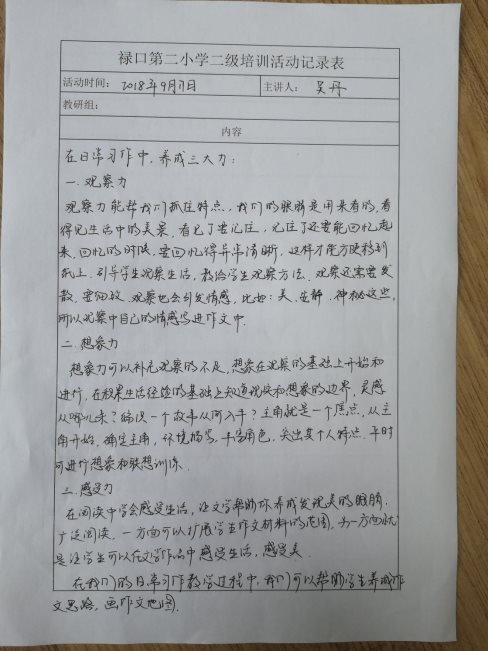 禄口第二小学二级培训活动记录表
活动时间： 2018年9月11日 主讲人： 吴丹
教研组：
内容
在日常习作中，养成三大力：
一、观察力
观察力能帮我们抓住特点，我们的眼睛是用来看的，看
得见生活中的美景，看见了要记住，记住了还要能回忆起
来，回忆的时候，要回忆得异常清晰，这样才能方便移到
纸上。引导学生观察生活，教给学生观察方法，观察还需要发
散，要细致，观察也会引发情感，比如：美、安静、神秘这些，
所以观察中自己的情感写进作文中。
二、想象力
想象力可以补充观察的不足，想象在观察的基础上开始和
进行，在积累生活经验的基础上知道现实和想象的边界，灵感
从哪儿来？编误一个故事从何入手？主角就是一个焦点，从主
角开始，确定主角，环境描写，丰富角色，突出某个人特点，平时
可进行想象和联想训练。
三、感受力
在阅读中学会感受生活，让文学帮助你养成发现美的眼睛。
广泛阅读，一方面可以扩展学生作文材料的范围，另一方面就
是让学生可以在文学作品中感受生活，感受美。
在我们的日常习作教学过程中，我们可以帮助学生养成作
文思路，画作文地图。